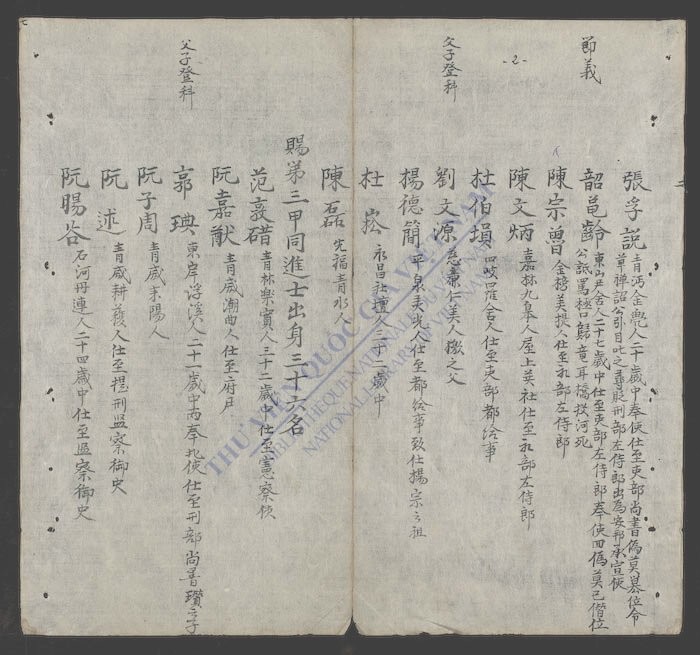 節義
張孚說 青沔金甕人二十歲中奉使仕至吏部尚書偽莫篡位令
草禅詔公引目叱之尋貶刑部左侍郎出為安邦承宣使
韶竜齡 東山尹舍人二十七歲中仕至吏部左侍郎奉使回偽莫已僭位
公詆罵極口歸竜耳橋投河死
陳宗曾 金榜美提人仕至礼部左侍郎
陳文炳 嘉林九皋人屋上芙社仕至礼部左侍郎
杜伯塤 四岐羅舍人仕至吏部都給事
-2-
父子登科
劉文源 慈廉仁美人撽之父
楊德簡 平泉天光人仕至都給事致仕楊宗之祖
杜崧 永昌社壇人三十一歲中
陳磊 先福青水人
賜第三甲同進士出身三十六名
范碏 青林樂實人三十二歲中仕至憲察使
阮嘉猷 青威潮曲人仕至府尹
父子登科
郭㙉 東岸浮溪人二十一歲中両奉北使仕至刑部尚書瓚之子
阮子周 青威耒陽人
阮述 青威耕穫人仕至提刑監察御史
阮暘谷 石河丹連人二十四歲中仕至監察御史
THƯ VIỆN QUỐC GIA VIỆT NAM
BIBLIOTHÈQUE NATIONALE DU VIETNAM
NATIONAL LIBRARY OF VIETNAM